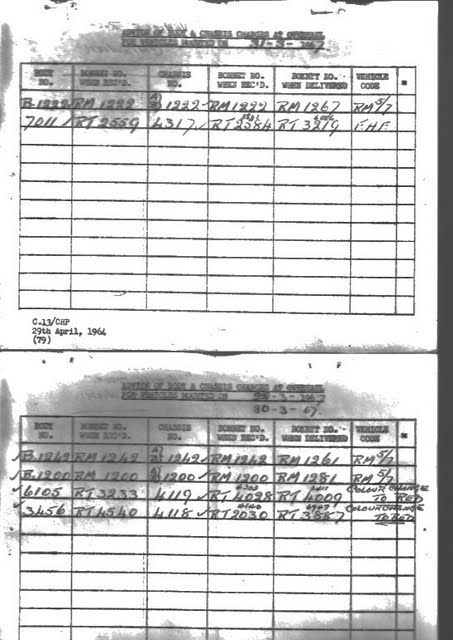 ADVICE OF BODY & CHASSIS CHANGES AT OVERHAUL
FOR VEHICLES MOUNTED ON 31-3-1967.
BODY NO. BONNET NO. WHEN REC'D. CHASSIS NO. BONNET NO. WHEN REC'D. BONNET NO. WHEN DELIVERED VEHICLE CODE
B1222 RM1222 1222 RM1222 RM1267 RM 5/7
7011 RT2559 4317 RT2584 RT3219
C.13/CHP
29th April, 1964
(79)
ADVICE OF BODY & CHASSIS CHANGES AT OVERHAUL
FOR VEHICLES MOUNTED ON -3-1967
30-3-67.
BODY NO. BONNET NO. WHEN REC'D. CHASSIS NO. BONNET NO. WHEN REC'D. BONNET NO. WHEN DELIVERED VEHICLE CODE
B1242 RM1242 1242 RM1242 RM1261 RM 5/7
B1200 RM1200 1200 RM1200 RM1281 RM 5/7
6105 RT3233 4119 RT4028 RT4009 COLOUR CHANGE TO RED
3456 RT4540 4118 RT2030 RT3887 COLOUR CHANGE TO RED